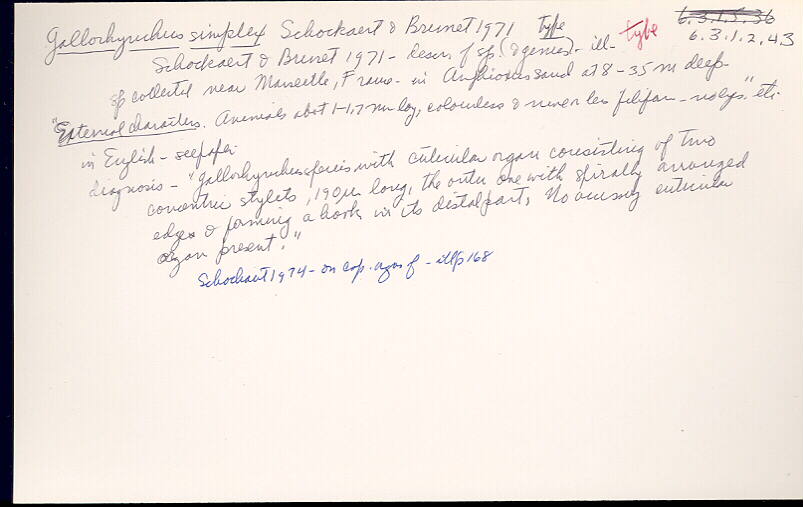 Gallorhynchus simplex Schockaert & Brunet 1971 type
type
6.3.1.5.36
6.3.1.2.43
Schockaert & Brunet 1971 - descr of sp. (& genus) - ill -
sp collected near Marseille, France - in Amphioxus sand at 8 - 35 m deep -
"External characters. Animals about 1-1,7 mm long, colourless & more or less filifom - no eyes." etc.
in English - see paper
diagnosis - "Gallorhynchus species with cuticular organ consisting of two
concentric stylets, 190 µm long, the outer one with spirally arranged
edge & forming a hook in its distal part. No accessory cuticular
organ present."
Schockaert 1974 - on cop. organ of - ill p 168